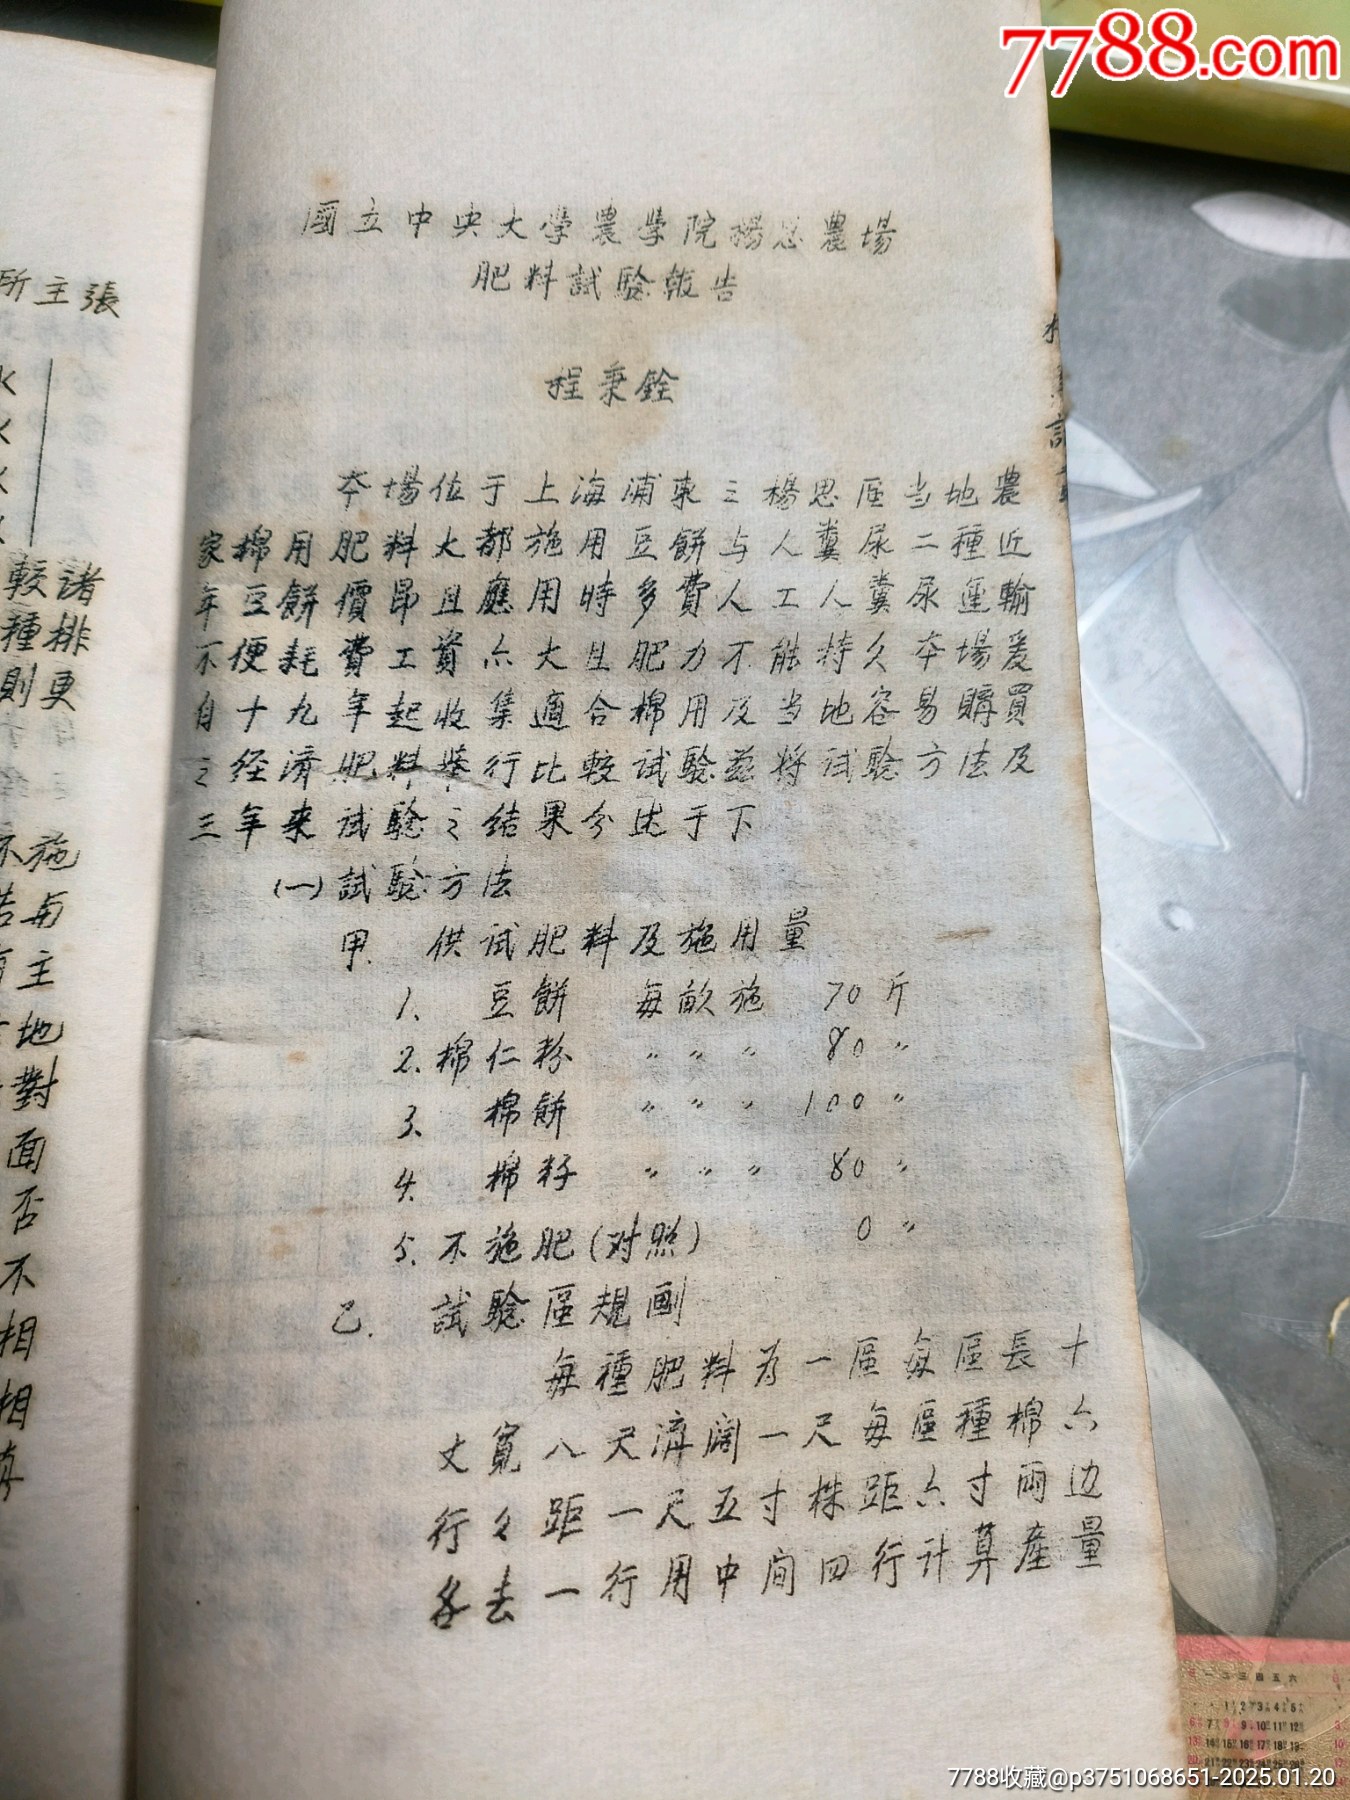 7788.com
國立中央大學農學院楊思農場
肥料試驗報告
程秉銓
本場位于上海浦東之楊思區当地農
家棉用肥料大都施用豆餅与人糞尿二種近
年豆餅價昂且應用時多費人工人糞尿運輸
不便耗費工資亦大且肥力不能持久本場爰
自十九年起收集適合棉用及当地容易購買
之经濟肥料举行比較试驗兹將试驗方法及
三年来试驗之结果分述于下
(一)試驗方法
甲. 供试肥料及施用量
1. 豆餅 每畝施 70斤
2. 棉仁粉 〃〃〃 80〃
3. 棉餅 〃〃〃 100〃
4. 棉籽 〃〃〃 80〃
5. 不施肥(对照) 0〃
乙. 試驗區規劃
每種肥料为一區每區長十
丈寬八尺溝闊一尺每區種棉六
行々距一尺五寸株距六寸兩边
各去一行用中间四行计算產量
所主張
諸
較
排
種
更
則
施
不
与
主
地
對
面
否
不
相
相
7788收藏@p3751068651-2025.01.20